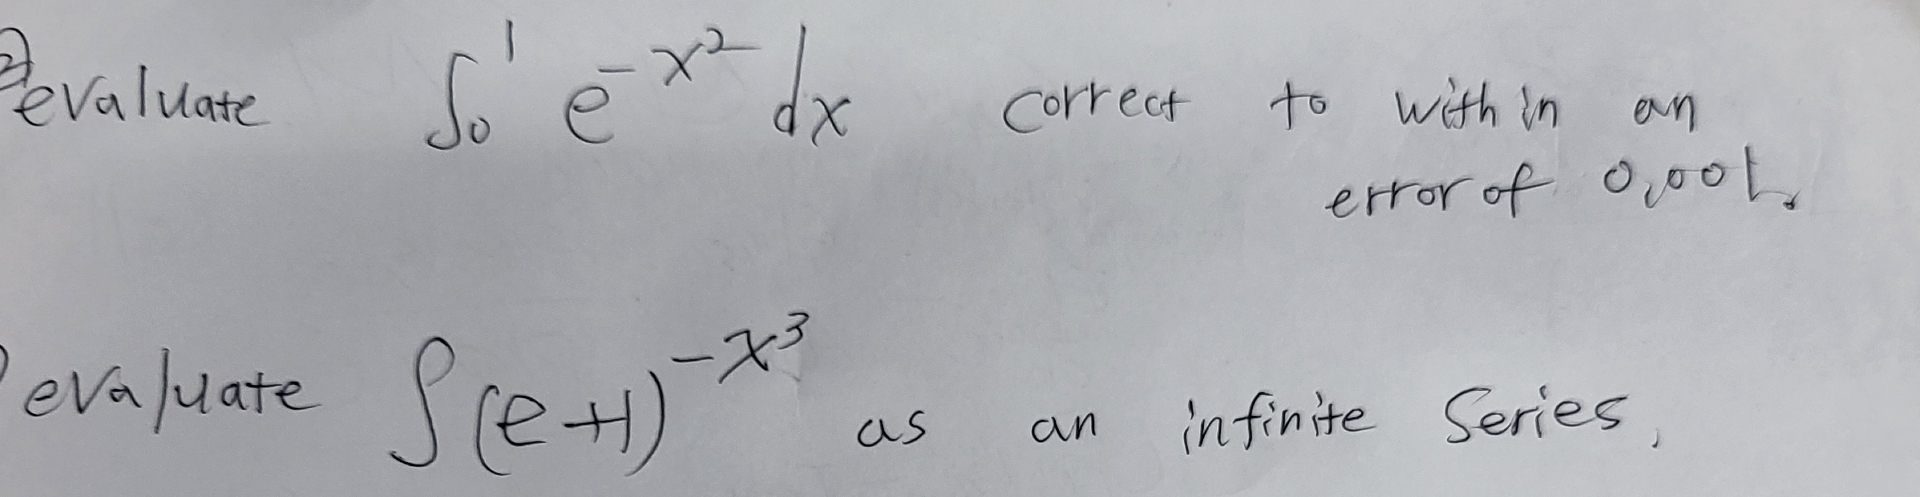 2) evaluate ∫₀¹ e^{-x²} dx correct to within an
error of 0,001.
) evaluate ∫(e+1)^{-x³} as an infinite series,